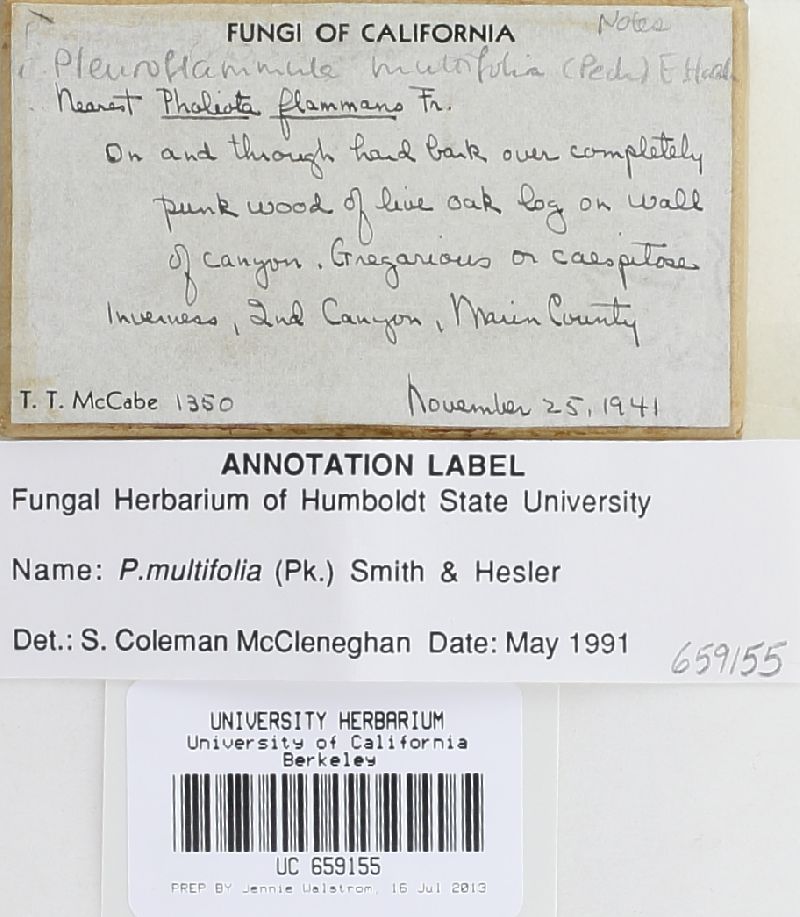 Notes
FUNGI OF CALIFORNIA
Pleuroflammula multifolia (Peck) E
Nearest Pholiota flammans Fr.
On and through hard bark over completely
punk wood of live oak log on wall
of canyon. Gregarious or caespitose
Inverness, 2nd Canyon, Marin County
T. T. McCabe 1350 November 25, 1941
ANNOTATION LABEL
Fungal Herbarium of Humboldt State University
Name: P.multifolia (Pk.) Smith & Hesler
Det.: S. Coleman McCleneghan Date: May 1991
659155
UNIVERSITY HERBARIUM
University of California
Berkeley
UC 659155
PREP BY Jennie Walstrom, 16 Jul 2013